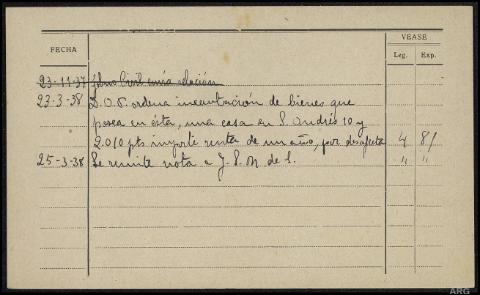 FECHA
VEASE
Leg. Exp.
23-11-37 Gbno Civil envía relación
23-3-38 D.O.P. ordena incautación de bienes que
posea en ésta, una casa en S. Andrés 10 y
2.010 pts importe renta de un año, por desafecta 4 81
25-3-38 Se remite nota a J. P. M. de S. " "
ARG